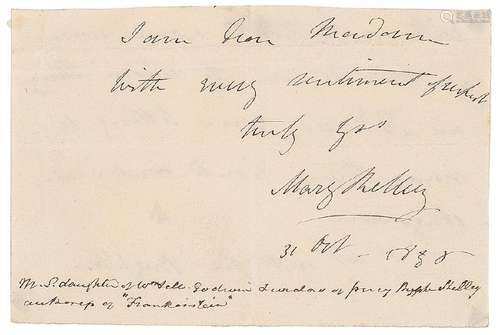 I am Dear Madam
With every sentiment of respect
truly Yrs
Mary Shelley
31 Oct - 1838
M. S. daughter of Wm Godwin & widow of Percy Bysshe Shelley
authoress of "Frankenstein"